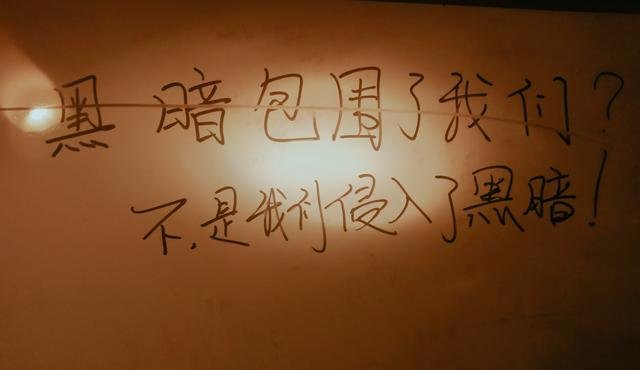 黑暗包围了我们?
不,是我们侵入了黑暗!